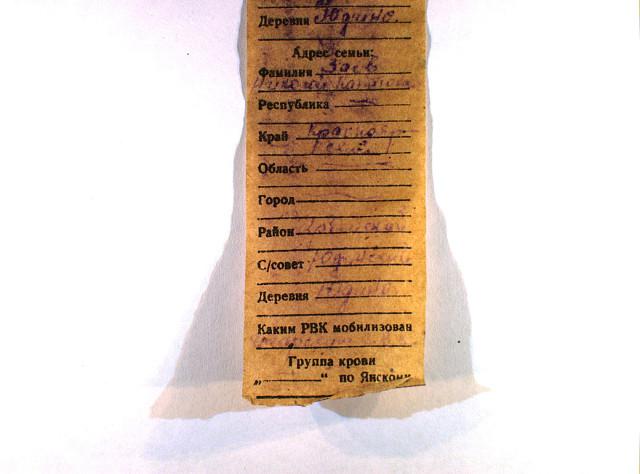 Деревня Юдино
Адрес семьи:
Фамилия Заев
Николай
Республика
Край Краснояр-
ский
Область
Город
Район
С/совет Юдинский
Деревня Юдино
Каким РВК мобилизован
Группа крови
„ “ по Янскому